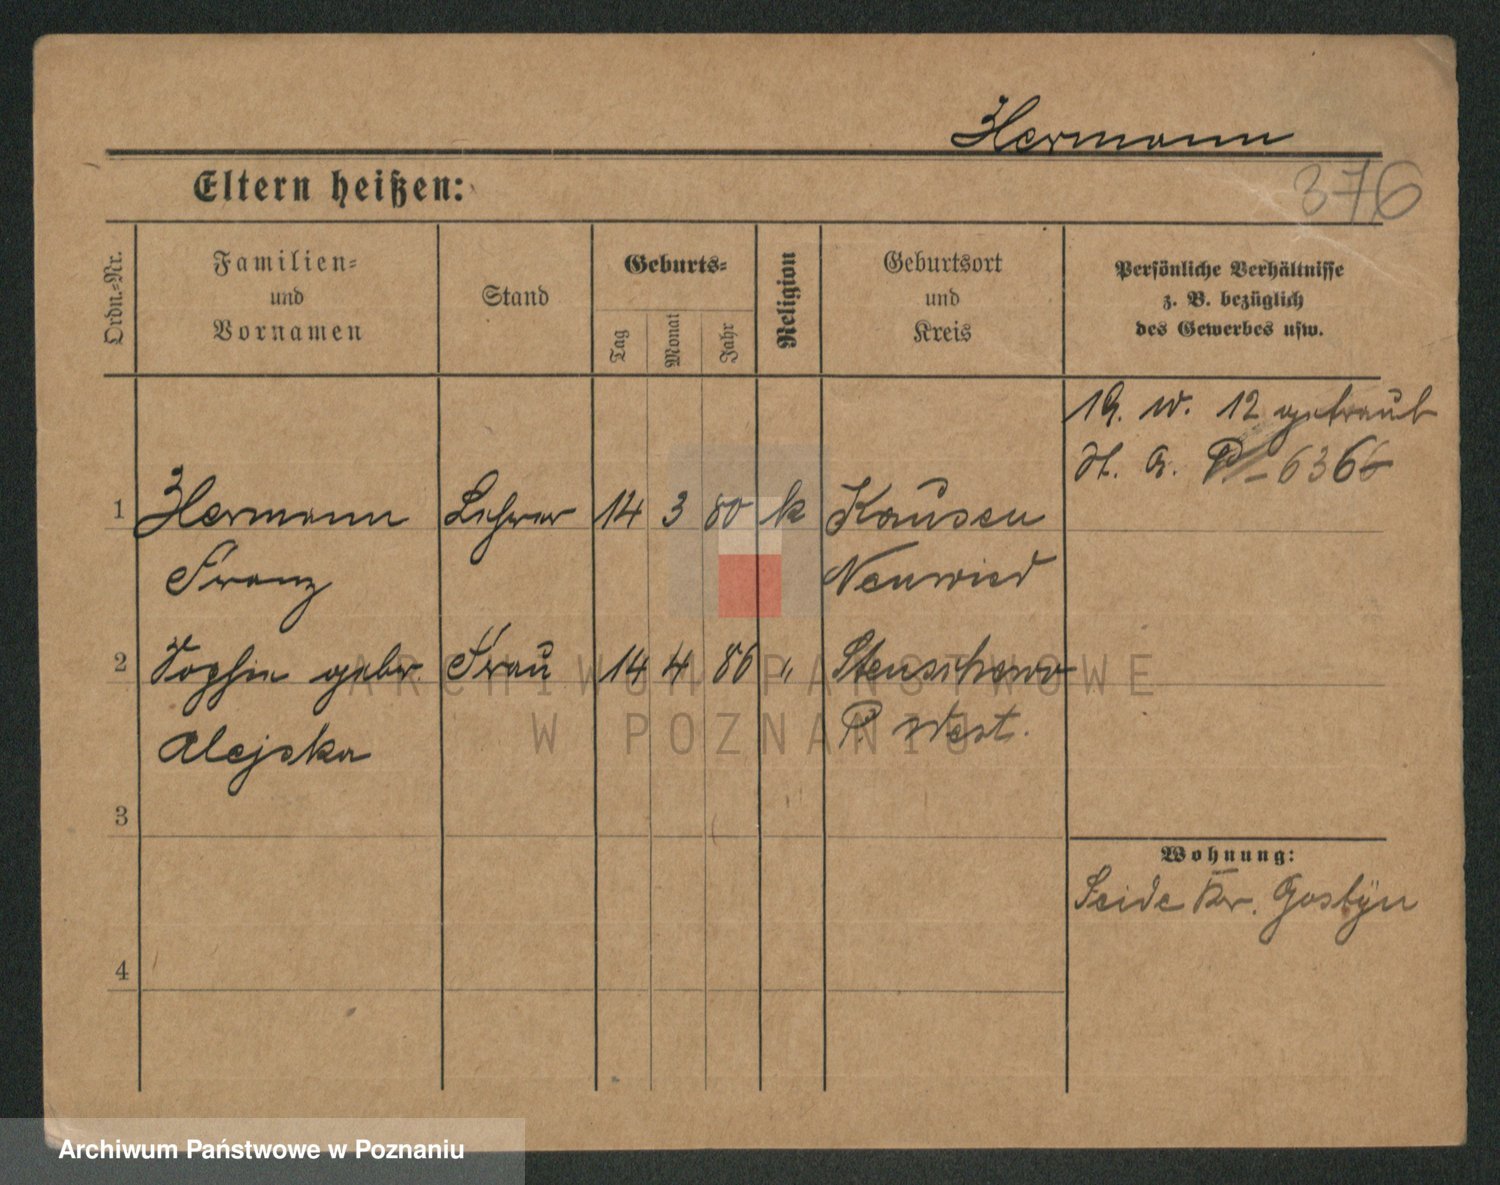 Hermann
Eltern heißen:
376
Ordn.-Nr.
Familien-
und
Vornamen
Stand
Geburts-
Tag
Monat
Jahr
Religion
Geburtsort
und
Kreis
Persönliche Verhältnisse
z. B. bezüglich
des Gewerbes usw.
12 getraut
6366
1 Hermann Lehrer 14 3 80 k Kausen
Franz Neuwied
2 Sophie gebr. Frau 14 4 86 " Stenschewo
Alejska P. West.
3
4
Wohnung:
Seide Kr. Gostÿn
ARCHIWUM PAŃSTWOWE
W POZNANIU
Archiwum Państwowe w Poznaniu